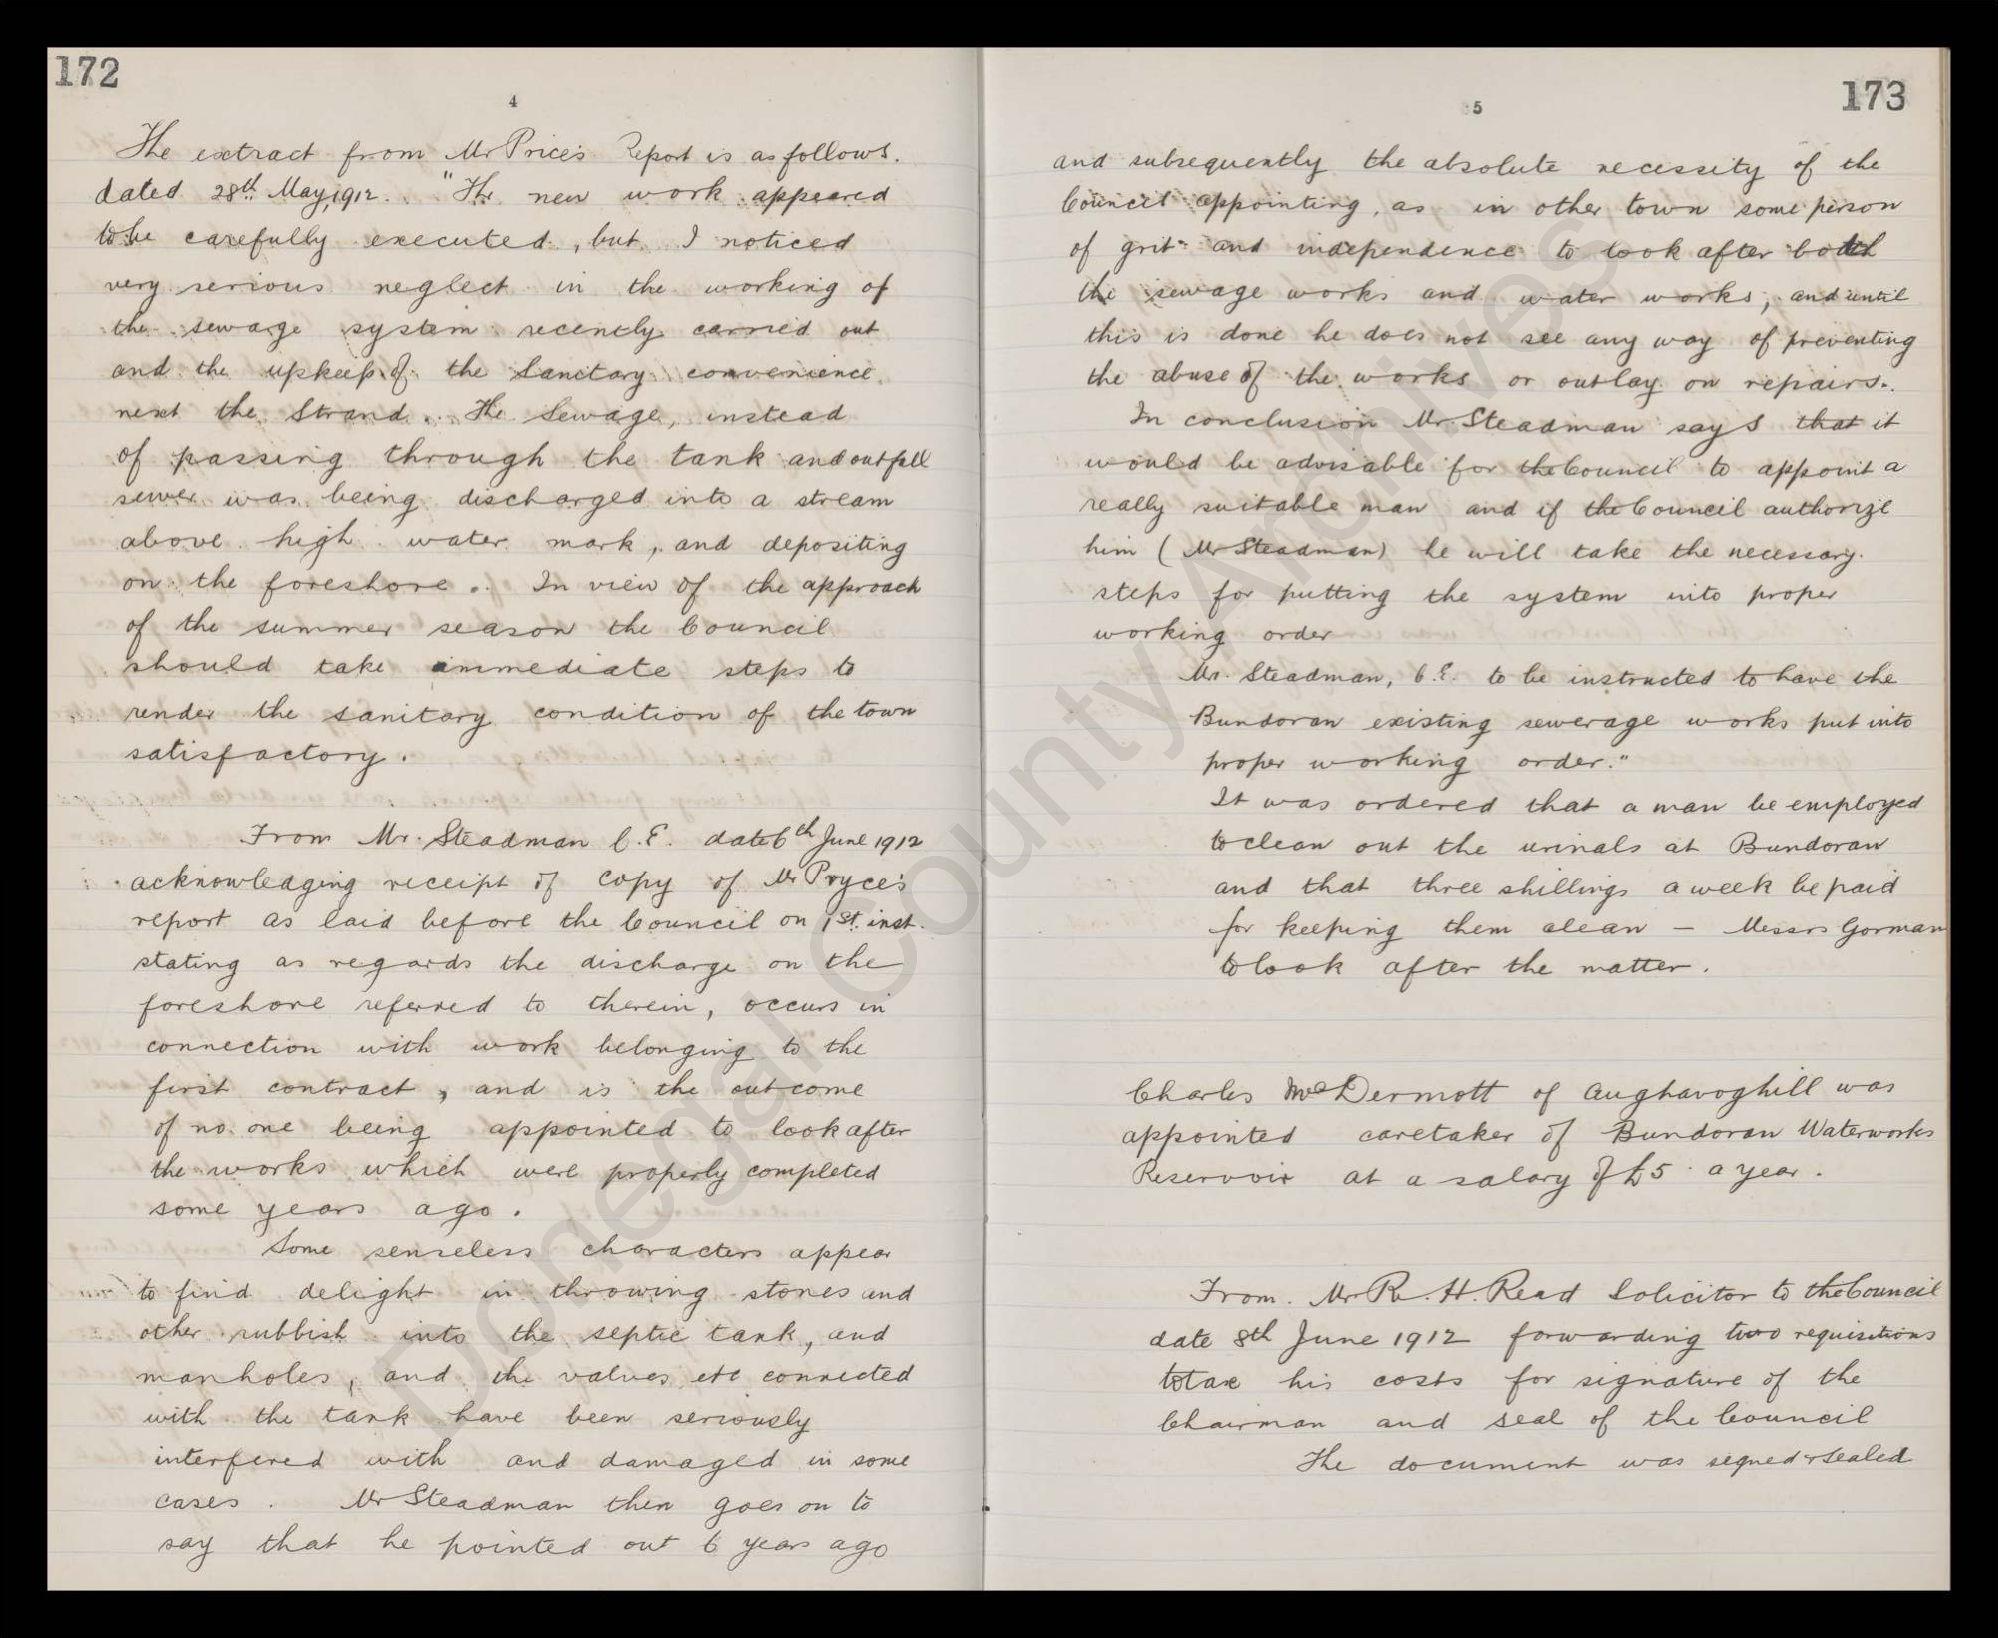 172
4
The extract from Mr Price's Report is as follows.
dated 28th May, 1912. "The new work appeared
to be carefully executed, but I noticed
very serious neglect in the working of
the sewage system recently carried out
and the upkeep of the Sanitary convenience
next the Strand. The Sewage, instead
of passing through the tank and outfall
sewer was being discharged into a stream
above high water mark, and depositing
on the foreshore. In view of the approach
of the summer season the Council
should take immediate steps to
render the sanitary condition of the town
satisfactory.
From Mr. Steadman C.E. date 6th June 1912
acknowledging receipt of copy of Mr Pryce's
report as laid before the Council on 1st. inst.
stating as regards the discharge on the
foreshore referred to therein, occurs in
connection with work belonging to the
first contract, and is the outcome
of no one being appointed to look after
the works which were properly completed
some years ago.
Some senseless characters appear
to find delight in throwing stones and
other rubbish into the septic tank, and
manholes, and the valves etc connected
with the tank have been seriously
interfered with and damaged in some
cases. Mr Steadman then goes on to
say that he pointed out 6 years ago
173
5
and subsequently the absolute necessity of the
Council appointing, as in other town some person
of grit and independence to look after both
the sewage works and water works, and until
this is done he does not see any way of preventing
the abuse of the works or outlay on repairs.
In conclusion Mr. Steadman says that it
would be advisable for the Council to appoint a
really suitable man and if the Council authorize
him (Mr Steadman) he will take the necessary
steps for putting the system into proper
working order
Mr. Steadman, C.E. to be instructed to have the
Bundoran existing sewerage works put into
proper working order."
It was ordered that a man be employed
to clean out the urinals at Bundoran
and that three shillings a week be paid
for keeping them clean – Messrs Gorman
to look after the matter.
Charles McDermott of Aughavoghill was
appointed caretaker of Bundoran Waterworks
Reservoir at a salary of £5 a year.
From Mr R. H. Read Solicitor to the Council
date 8th June 1912 forwarding two requisitions
to tax his costs for signature of the
Chairman and seal of the Council
The document was signed & sealed
Donegal County Archives